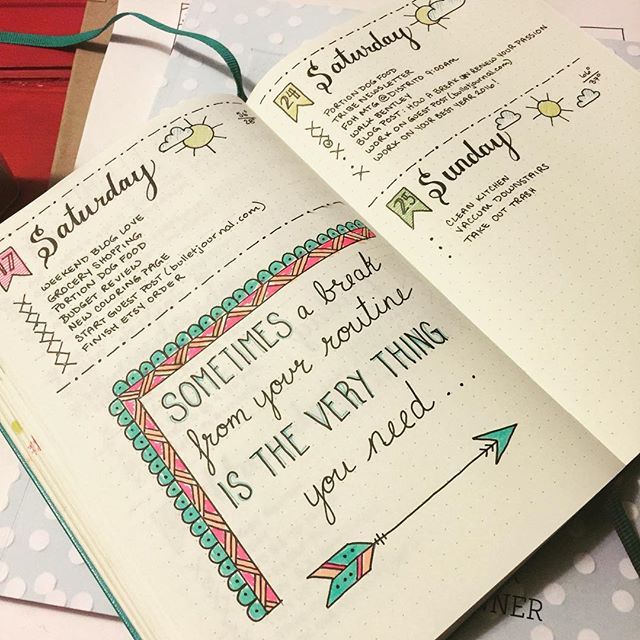 17
Saturday
WEEKEND BLOG LOVE
GROCERY SHOPPING
PORTION DOG FOOD
BUDGET REVIEW
NEW COLORING PAGE
START GUEST POST (bulletjournal.com)
FINISH ETSY ORDER
SOMETIMES a break
from your routine
IS THE VERY THING
you need...
24
Saturday
PORTION DOG FOOD
TRIBE NEWSLETTER
FOH MTG @ DISTRITO 9:00AM
WALK BENTLEY
BLOG POST: HOW A BREAK CAN RENEW YOUR PASSION
WORK ON GUEST POST (bulletjournal.com)
WORK ON YOUR BEST YEAR 2016!
25
Sunday
CLEAN KITCHEN
VACCUM DOWNSTAIRS
TAKE OUT TRASH